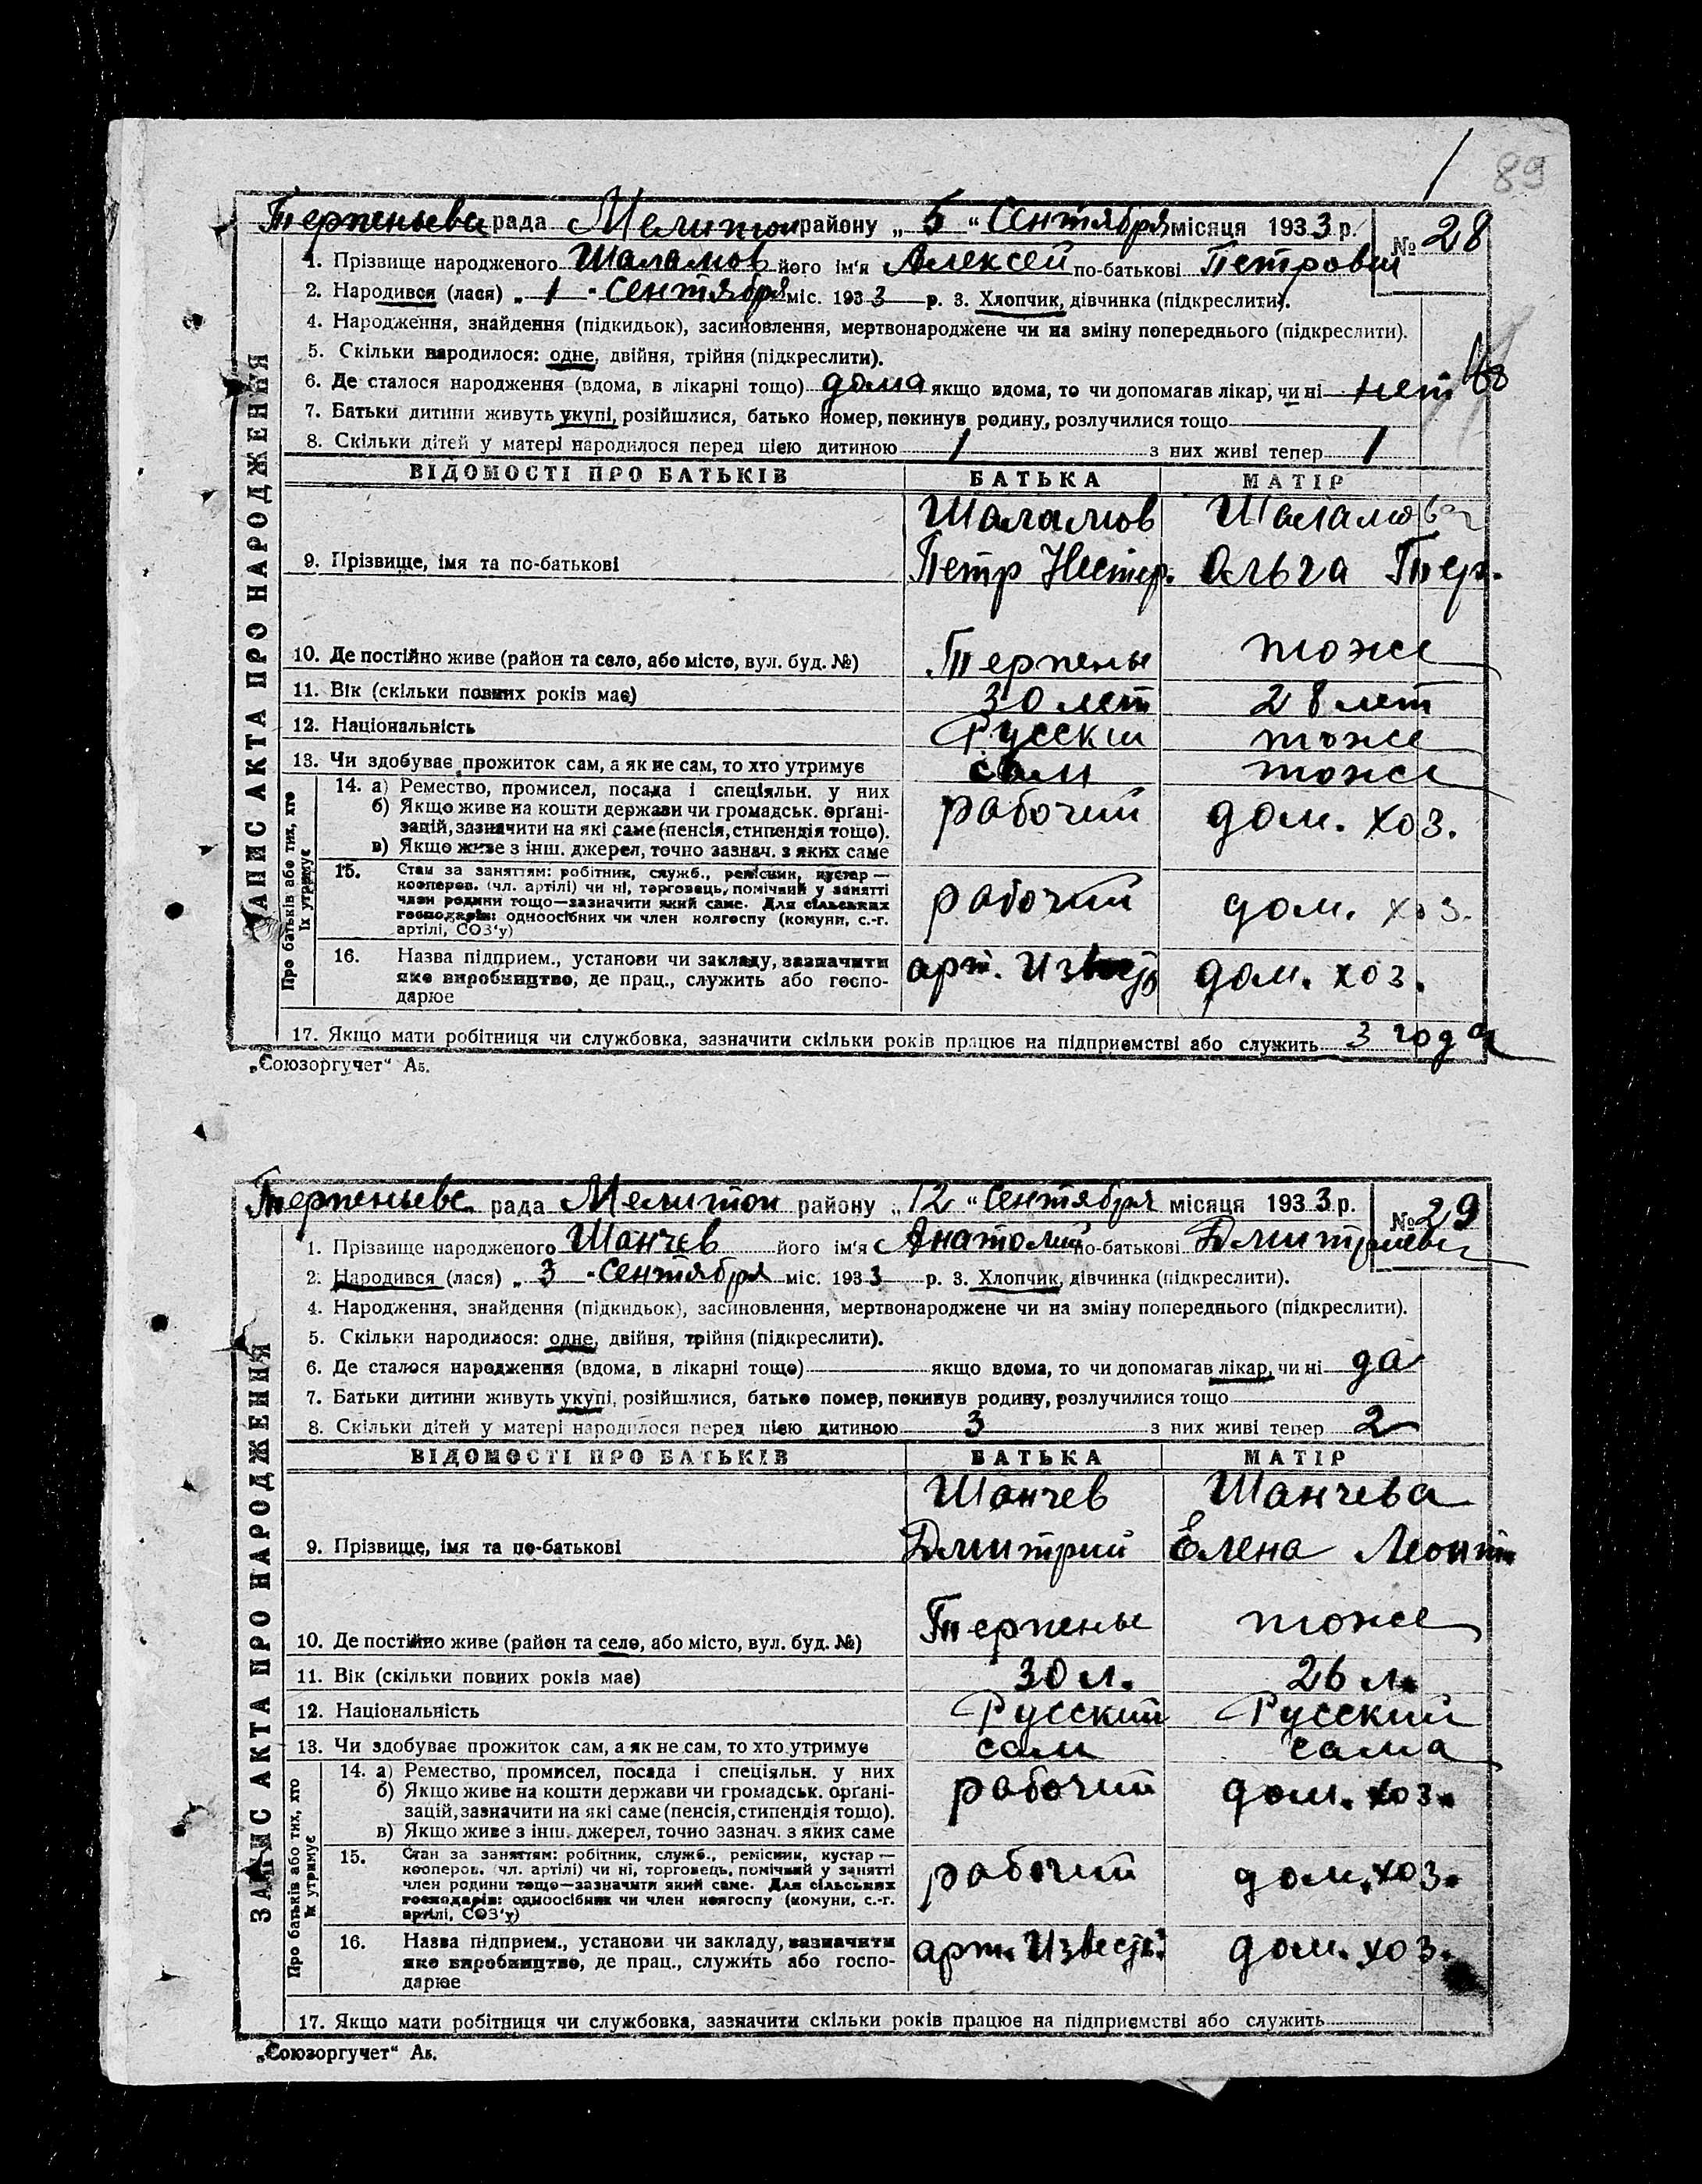 89
Терпеньева рада Мелитоп району „ 5 " Сентября місяця 1933 р. № 28
1. Прізвище народженого Шаламов його ім'я Алексей по-батькові Петрович
2. Народився (лася) „ 1 " Сентября міс. 1933 р. 3. Хлопчик, дівчинка (підкреслити).
4. Народження, знайдення (підкидьок), засиновлення, мертвонароджене чи на зміну попереднього (підкреслити).
5. Скільки народилося: одне, двійня, трійня (підкреслити).
6. Де сталося народження (вдома, в лікарні тощо) дома якщо вдома, то чи допомагав лікар, чи ні нет
7. Батьки дитини живуть укупі, розійшлися, батько помер, покинув родину, розлучилися тощо
8. Скільки дітей у матері народилося перед цією дитиною 1 з них живі тепер 1
ВІДОМОСТІ ПРО БАТЬКІВ БАТЬКА МАТІР
Шаламов Шаламова
9. Прізвище, імя та по-батькові Петр Нестер. Ольга Тер.
10. Де постійно живе (район та село, або місто, вул. буд. №) Терпенье тоже
11. Вік (скільки повних років має) 30 лет 28 лет
12. Національність Русский тоже
13. Чи здобуває прожиток сам, а як не сам, то хто утримує сам тоже
14. а) Ремество, промисел, посада і спеціяльн. у них
б) Якщо живе на кошти держави чи громадськ. органі- рабочий дом. хоз.
зацій, зазначити на які саме (пенсія, стипендія тощо).
в) Якщо живе з інш. джерел, точно зазнач. з яких саме
15. Стан за заняттям: робітник, служб., ремісник, кустар —
кооперов. (чл. артілі) чи ні, торговець, помічний у занятті
член родини тощо—зазначити який саме. Для сільських рабочий дом. хоз.
господарів: одноосібних чи член колгоспу (комуни, с.-г.
артілі, СОЗ'у)
16. Назва підприєм., установи чи закладу, зазначити арт. Известь дом. хоз.
яке виробництво, де прац., служить або госпо-
дарює
17. Якщо мати робітниця чи службовка, зазначити скільки років працює на підприємстві або служить 3 года
Про батьків або тих, хто
їх утримує
ЗАПИС АКТА ПРО НАРОДЖЕННЯ
„Союзоргучет" А5.
Терпеньеве рада Мелитоп району „ 12 " Сентября місяця 1933 р. № 29
1. Прізвище народженого Шанчев його ім'я Анатолий по-батькові Дмитриевич
2. Народився (лася) „ 3 " Сентября міс. 1933 р. 3. Хлопчик, дівчинка (підкреслити).
4. Народження, знайдення (підкидьок), засиновлення, мертвонароджене чи на зміну попереднього (підкреслити).
5. Скільки народилося: одне, двійня, трійня (підкреслити).
6. Де сталося народження (вдома, в лікарні тощо) якщо вдома, то чи допомагав лікар, чи ні да
7. Батьки дитини живуть укупі, розійшлися, батько помер, покинув родину, розлучилися тощо
8. Скільки дітей у матері народилося перед цією дитиною 3 з них живі тепер 2
ВІДОМОСТІ ПРО БАТЬКІВ БАТЬКА МАТІР
Шанчев Шанчева
9. Прізвище, імя та по-батькові Дмитрий Елена Леонт
10. Де постійно живе (район та село, або місто, вул. буд. №) Терпенье тоже
11. Вік (скільки повних років має) 30 л. 26 л.
12. Національність Русский Русский
13. Чи здобуває прожиток сам, а як не сам, то хто утримує сам сама
14. а) Ремество, промисел, посада і спеціяльн. у них
б) Якщо живе на кошти держави чи громадськ. органі- рабочий дом. хоз.
зацій, зазначити на які саме (пенсія, стипендія тощо).
в) Якщо живе з інш. джерел, точно зазнач. з яких саме
15. Стан за заняттям: робітник, служб., ремісник, кустар —
кооперов. (чл. артілі) чи ні, торговець, помічний у занятті
член родини тощо—зазначити який саме. Для сільських рабочий дом. хоз.
господарів: одноосібник чи член колгоспу (комуни, с.-г.
артілі, СОЗ'у)
16. Назва підприєм., установи чи закладу, зазначити арт. Известь дом. хоз.
яке виробництво, де прац., служить або госпо-
дарює
17. Якщо мати робітниця чи службовка, зазначити скільки років працює на підприємстві або служить
Про батьків або тих, хто
їх утримує
ЗАПИС АКТА ПРО НАРОДЖЕННЯ
„Союзоргучет" А5.